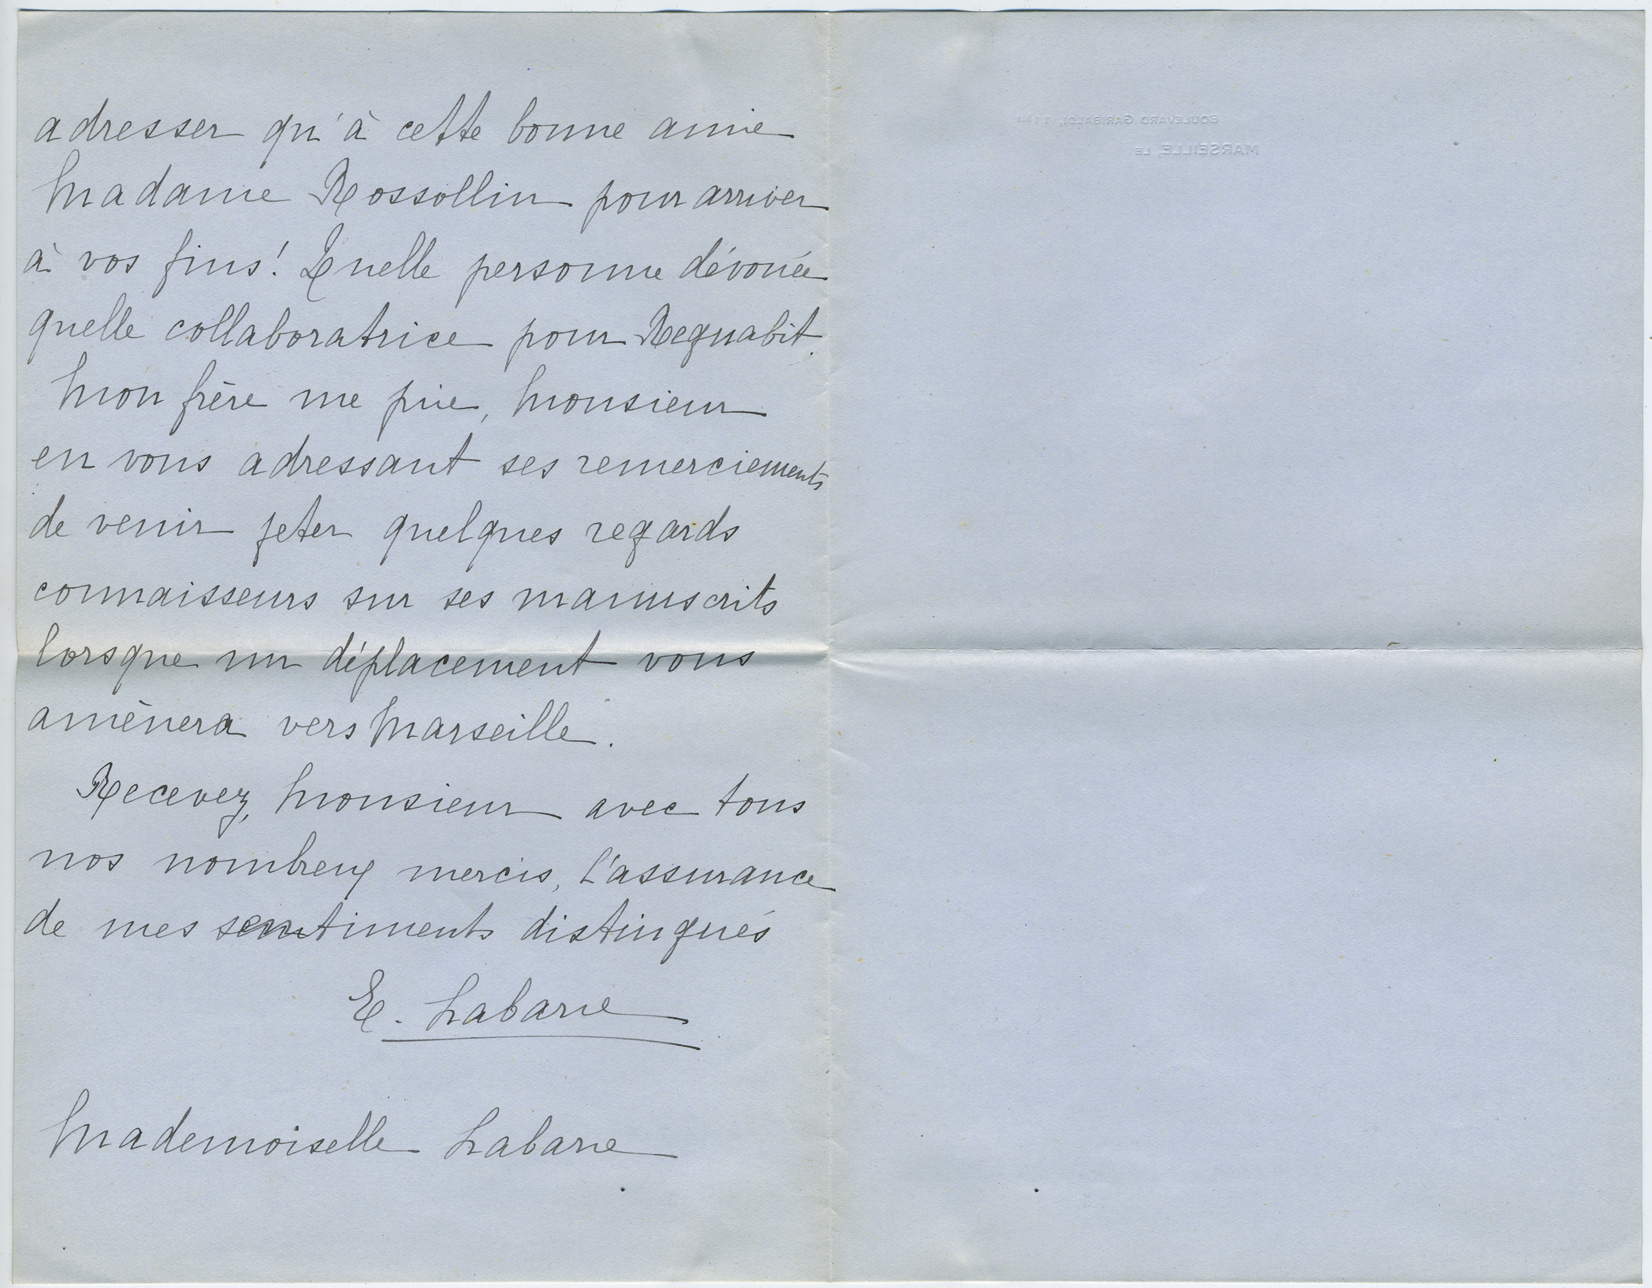 adresser qu'à cette bonne amie
Madame Rossollin pour arriver
à vos fins! Quelle personne dévouée
quelle collaboratrice pour Regnabit.
Mon frère me prie, Monsieur
en vous adressant ses remerciements
de venir jeter quelques regards
connaisseurs sur ses manuscrits
lorsque un déplacement vous
amènera vers Marseille.
Recevez, Monsieur avec tous
nos nombreux mercis, l'assurance
de mes sentiments distingués
E. Labarre
Mademoiselle Labarre
BOULEVARD GARIBALDI,
MARSEILLE, LE